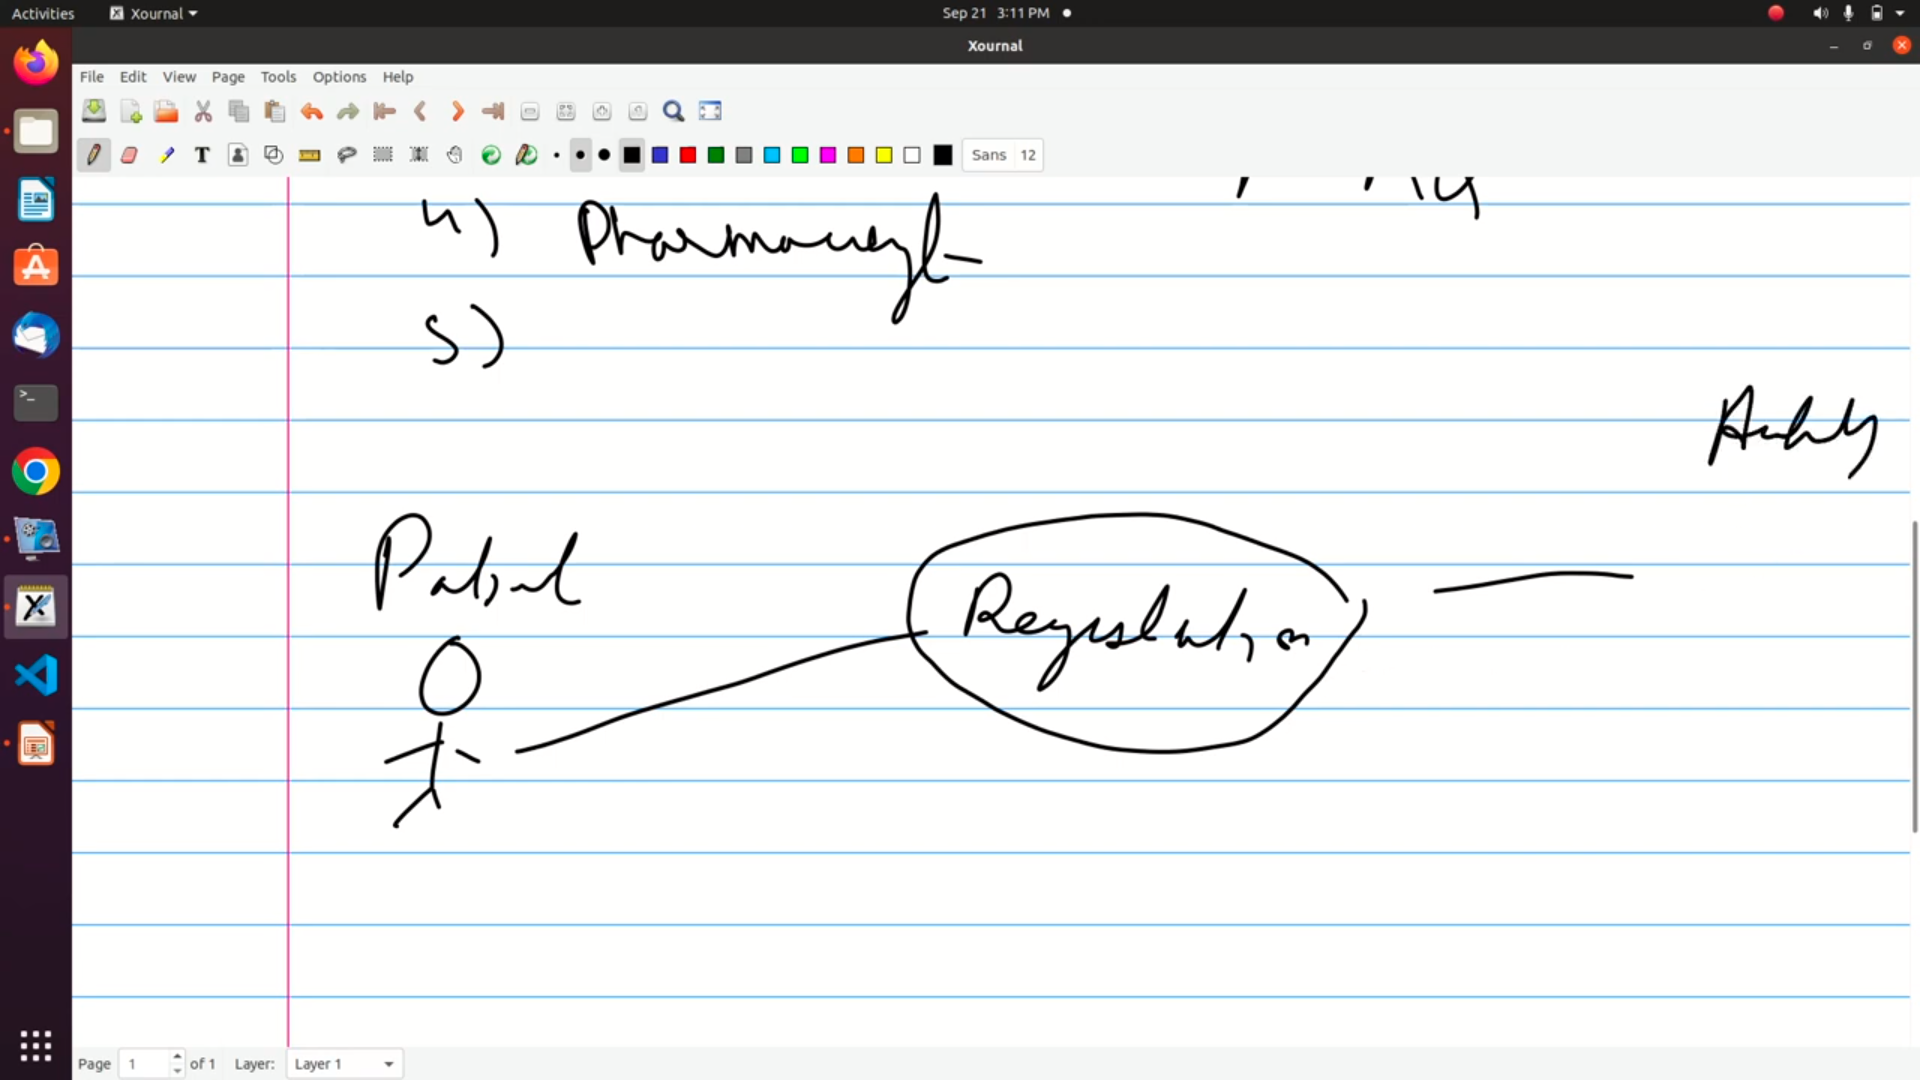 Activities Xournal Sep 21 3:11 PM
Xournal
File Edit View Page Tools Options Help
T Sans 12
4) Pharmacyt-
5)
Patient
Registration
Page 1 of 1 Layer: Layer 1